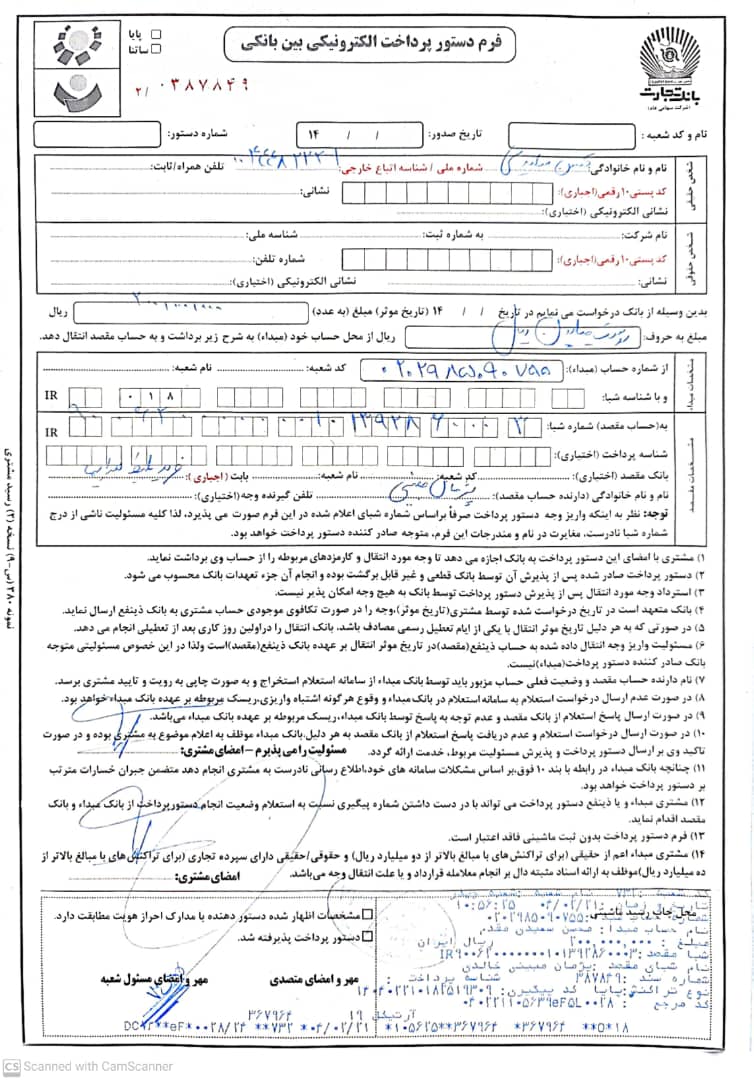 فرم دستور پرداخت الکترونیکی بین بانکی
پایا
ساتنا
بانک تجارت
(شرکت سهامی عام)
۲/ ۰۳۸۷۸۴۹
نام و کد شعبه: تاریخ صدور: / / ۱۴ شماره دستور:
شخص حقیقی
نام و نام خانوادگی: شماره ملی / شناسه اتباع خارجی: تلفن همراه/ثابت:
کد پستی۱۰رقمی(اجباری): نشانی:
نشانی الکترونیکی (اختیاری):
شخص حقوقی
نام شرکت: به شماره ثبت: شناسه ملی:
کد پستی۱۰رقمی(اجباری): شماره تلفن:
نشانی: نشانی الکترونیکی (اختیاری):
بدین وسیله از بانک درخواست می نمایم در تاریخ / / ۱۴ (تاریخ موثر) مبلغ (به عدد) ۲۰۰۰۱۰۰۰۱۰۰۰ ریال
مبلغ به حروف: دویست میلیون ریال ریال از محل حساب خود (مبداء) به شرح زیر برداشت و به حساب مقصد انتقال دهد.
مشخصات مبداء
از شماره حساب (مبداء): ۰۲۰۲۹۸۵۰۹۰۷۵۵ کد شعبه: نام شعبه:
و با شناسه شبا: ۰۱۸ IR
مشخصات مقصد
به(حساب مقصد) شماره شبا: IR
شناسه پرداخت (اختیاری):
بانک مقصد (اختیاری): کد شعبه: نام شعبه: بابت (اجباری):
نام و نام خانوادگی (دارنده حساب مقصد): تلفن گیرنده وجه(اختیاری):
توجه: نظر به اینکه واریز وجه دستور پرداخت صرفاً براساس شماره شبای اعلام شده در این فرم صورت می پذیرد، لذا کلیه مسئولیت ناشی از درج
شماره شبا نادرست، مغایرت در نام و مندرجات این فرم، متوجه صادر کننده دستور پرداخت خواهد بود.
۱) مشتری با امضای این دستور پرداخت به بانک اجازه می دهد تا وجه مورد انتقال و کارمزدهای مربوطه را از حساب وی برداشت نماید.
۲) دستور پرداخت صادر شده پس از پذیرش آن توسط بانک قطعی و غیر قابل برگشت بوده و انجام آن جزء تعهدات بانک محسوب می شود.
۳) استرداد وجه مورد انتقال پس از پذیرش دستور پرداخت توسط بانک به هیچ وجه امکان پذیر نیست.
۴) بانک متعهد است در تاریخ درخواست شده توسط مشتری(تاریخ موثر)،وجه را در صورت تکافوی موجودی حساب مشتری به بانک ذینفع ارسال نماید.
۵) در صورتی که به هر دلیل تاریخ موثر انتقال با یکی از ایام تعطیل رسمی مصادف باشد، بانک انتقال را دراولین روز کاری بعد از تعطیلی انجام می دهد.
۶) مسئولیت واریز وجه انتقال داده شده به حساب ذینفع(مقصد)در تاریخ موثر انتقال بر عهده بانک ذینفع(مقصد)است ولذا در این خصوص مسئولیتی متوجه
بانک صادر کننده دستور پرداخت(مبداء)نیست.
۷) نام دارنده حساب مقصد و وضعیت فعلی حساب مزبور باید توسط بانک مبداء از سامانه استعلام استخراج و به صورت چاپی به رویت و تایید مشتری برسد.
۸) در صورت عدم ارسال درخواست استعلام به سامانه استعلام در بانک مبداء و وقوع هر گونه اشتباه واریزی،ریسک مربوطه بر عهده بانک مبداء خواهد بود.
۹) در صورت ارسال پاسخ استعلام از بانک مقصد و عدم توجه به پاسخ توسط بانک مبداء،ریسک مربوطه بر عهده بانک مبداء می‌باشد.
۱۰) در صورت ارسال درخواست استعلام و عدم دریافت پاسخ استعلام از بانک مقصد به هر دلیل،بانک مبداء موظف به اعلام موضوع به مشتری بوده و در صورت
تاکید وی بر ارسال دستور پرداخت و پذیرش مسئولیت مربوط، خدمت ارائه گردد. مسئولیت را می پذیرم - امضای مشتری:
۱۱) چنانچه بانک مبداء در رابطه با بند ۱۰ فوق،بر اساس مشکلات سامانه های خود،اطلاع رسانی نادرست به مشتری انجام دهد متضمن جبران خسارات مترتب
بر دستور پرداخت خواهد بود.
۱۲) مشتری مبداء و یا ذینفع دستور پرداخت می تواند با در دست داشتن شماره پیگیری نسبت به استعلام وضعیت انجام دستورپرداخت از بانک مبداء و بانک
مقصد اقدام نماید.
۱۳) فرم دستور پرداخت بدون ثبت ماشینی فاقد اعتبار است.
۱۴) مشتری مبداء اعم از حقیقی (برای تراکنش‌های با مبالغ بالاتر از دو میلیارد ریال) و حقوقی/حقیقی دارای سپرده تجاری (برای تراکنش‌های با مبالغ بالاتر از
ده میلیاردریال)موظف به ارائه اسناد مثبته دال بر انجام معامله قرارداد و یا علت انتقال وجه می‌باشد. امضای مشتری:
نمونه ۳۸۰ (س-۹) نسخه (۲) رسید مشتری
مشخصات اظهار شده دستور دهنده با مدارک احراز هویت مطابقت دارد.
دستور پرداخت پذیرفته شد.
مهر و امضای متصدی
مهر و امضای مسئول شعبه
محل چاپ رسید ماشینی
تاریخ و زمان: ۰۴/۰۲/۲۱ ۱۰:۵۶:۲۵
شماره حساب مبدا: ۰۲۰۲۹۸۵۰۹۰۷۵۵
نام حساب مبدا: محسن سعیدی مقدم
مبلغ: ۲۰۰,۰۰۰,۰۰۰ ریال ایران
شبا مقصد: IR۹۰۰۶۲۰۰۰۰۰۰۰۱۰۱۳۹۲۸۶۰۰۰۳
نام شبای مقصد: پژمان مبینی خالدی
شماره سند: ۳۸۷۸۴۹ شناسه پرداخت:
نوع تراکنش:پایا کد پیگیری: ۱۴۰۴۰۲۲۱۰۱۸۲۵۱۹۳۰۹
کد مرجع: ۰۴۰۲۲۱۱۰۵۶۳۹eF۵L۰۰۲۸
آرتیکل ۱۹ ۳۶۷۹۶۴
DC۹۲**eF*۰۰۲۸/۲۴ **۷۳۲ *۰۴/۰۲/۲۱ *۱۰۵۶۲۵**۳۶۷۹۶۴ *۳۶۷۹۶۴ **۵*۱۸
CS Scanned with CamScanner